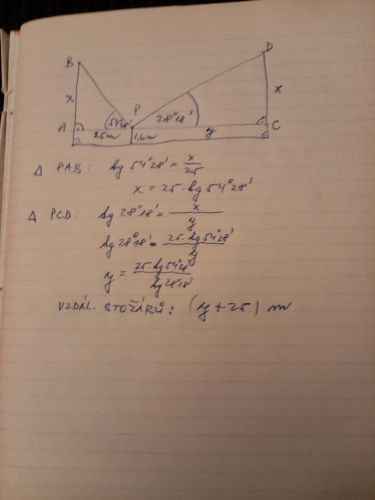 B D
x P x
A 54°28' 28°18' y C
25m 1,6m
Δ PAB: tg 54°28' = x/25
x = 25·tg 54°28'
Δ PCD: tg 28°18' = x/y
tg 28°18' = 25·tg 54°28'/y
y = 25·tg 54°28'/tg 28°18'
VZDÁL. STOŽÁRŮ: (y+25) m